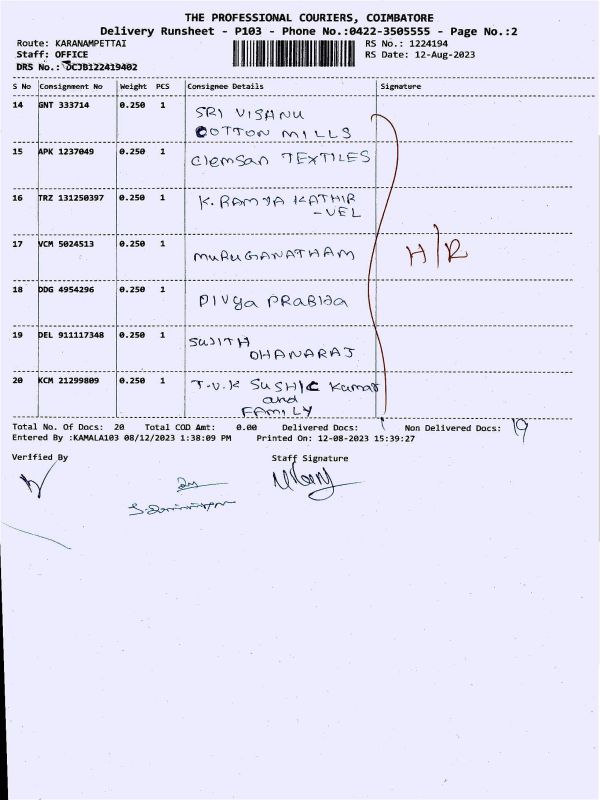 THE PROFESSIONAL COURIERS, COIMBATORE
Delivery Runsheet - P103 - Phone No.:0422-3505555 - Page No.:2
Route: KARANAMPETTAI RS No.: 1224194
Staff: OFFICE RS Date: 12-Aug-2023
DRS No.: DCJB122419402
S No Consignment No Weight PCS Consignee Details Signature
14 GNT 333714 0.250 1 SRI VISHNU
COTTON MILLS
15 APK 1237049 0.250 1 Clemsan TEXTILES
16 TRZ 131250397 0.250 1 K. RAMYA KATHIR
-VEL
17 VCM 5024513 0.250 1 MURUGANATHAM H/R
18 DDG 4954296 0.250 1 DIVya PRABHa
19 DEL 911117348 0.250 1 SUJITH
DHANARAJ
20 KCM 21299809 0.250 1 T.V.K SUSHIL Kumar
and
FAMILY
Total No. Of Docs: 20 Total COD Amt: 0.00 Delivered Docs: 1 Non Delivered Docs: 19
Entered By :KAMALA103 08/12/2023 1:38:09 PM Printed On: 12-08-2023 15:39:27
Verified By Staff Signature